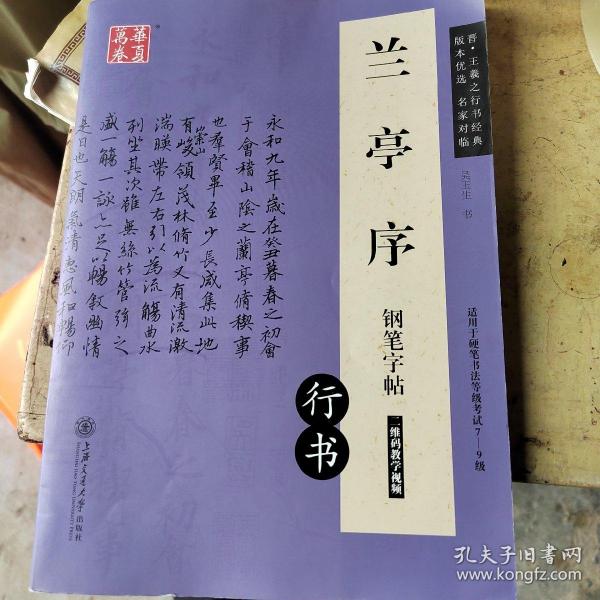 華夏
萬卷
晋·王羲之行书经典
版本优选 名家对临
吴玉生 书
兰亭序
钢笔字帖
二维码教学视频
行书
适用于硬笔书法等级考试7—9级
永和九年歲在癸丑暮春之初會
于會稽山陰之蘭亭脩稧事
也羣賢畢至少長咸集此地
崇山
有峻領茂林脩竹又有清流激
湍暎帶左右引以為流觴曲水
列坐其次雖無絲竹管弦之
盛一觴一詠亦足以暢敘幽情
是日也天朗氣清惠風和暢仰
上海交通大学出版社
SHANGHAI JIAO TONG UNIVERSITY PRESS
孔夫子旧书网
www.kongfz.com